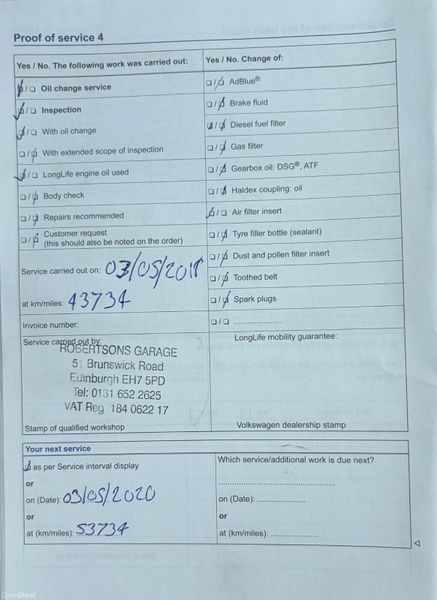 Proof of service 4
Yes / No. The following work was carried out:
☑/☐ Oil change service
☑/☐ Inspection
☑/☐ With oil change
☐/☑ With extended scope of inspection
☑/☐ LongLife engine oil used
☐/☑ Body check
☐/☑ Repairs recommended
☐/☑ Customer request
(this should also be noted on the order)
Service carried out on: 03/05/201
at km/miles: 43734
Invoice number:
Service carried out by:
ROBERTSONS GARAGE
51 Brunswick Road
Edinburgh EH7 5PD
Tel: 0131 652 2625
VAT Reg. 184 0622 17
Stamp of qualified workshop
Yes / No. Change of:
☐/☑ AdBlue®
☐/☑ Brake fluid
Diesel fuel filter
☐/☑ Gas filter
☐/☑ Gearbox oil: DSG®, ATF
☐/☑ Haldex coupling: oil
☑/☐ Air filter insert
☐/☑ Tyre filler bottle (sealant)
☐/☑ Dust and pollen filter insert
☐/☑ Toothed belt
☐/☑ Spark plugs
☐/☐ ......................
LongLife mobility guarantee:
Volkswagen dealership stamp
Your next service
☑ as per Service interval display
or
on (Date): 03/05/2020
or
at (km/miles): 53734
Which service/additional work is due next?
on (Date): ......................
or
at (km/miles): ......................